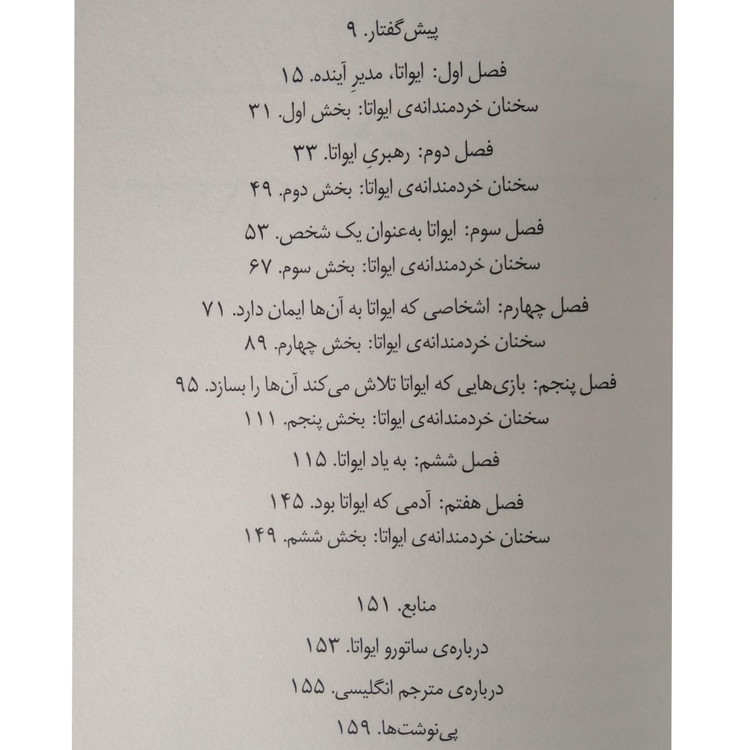 پیش‌گفتار. ۹
فصل اول: ایواتا، مدیرِ آینده. ۱۵
سخنان خردمندانه‌ی ایواتا: بخش اول. ۳۱
فصل دوم: رهبریِ ایواتا. ۳۳
سخنان خردمندانه‌ی ایواتا: بخش دوم. ۴۹
فصل سوم: ایواتا به‌عنوان یک شخص. ۵۳
سخنان خردمندانه‌ی ایواتا: بخش سوم. ۶۷
فصل چهارم: اشخاصی که ایواتا به آن‌ها ایمان دارد. ۷۱
سخنان خردمندانه‌ی ایواتا: بخش چهارم. ۸۹
فصل پنجم: بازی‌هایی که ایواتا تلاش می‌کند آن‌ها را بسازد. ۹۵
سخنان خردمندانه‌ی ایواتا: بخش پنجم. ۱۱۱
فصل ششم: به یاد ایواتا. ۱۱۵
فصل هفتم: آدمی که ایواتا بود. ۱۴۵
سخنان خردمندانه‌ی ایواتا: بخش ششم. ۱۴۹
منابع. ۱۵۱
درباره‌ی ساتورو ایواتا. ۱۵۳
درباره‌ی مترجم انگلیسی. ۱۵۵
پی‌نوشت‌ها. ۱۵۹